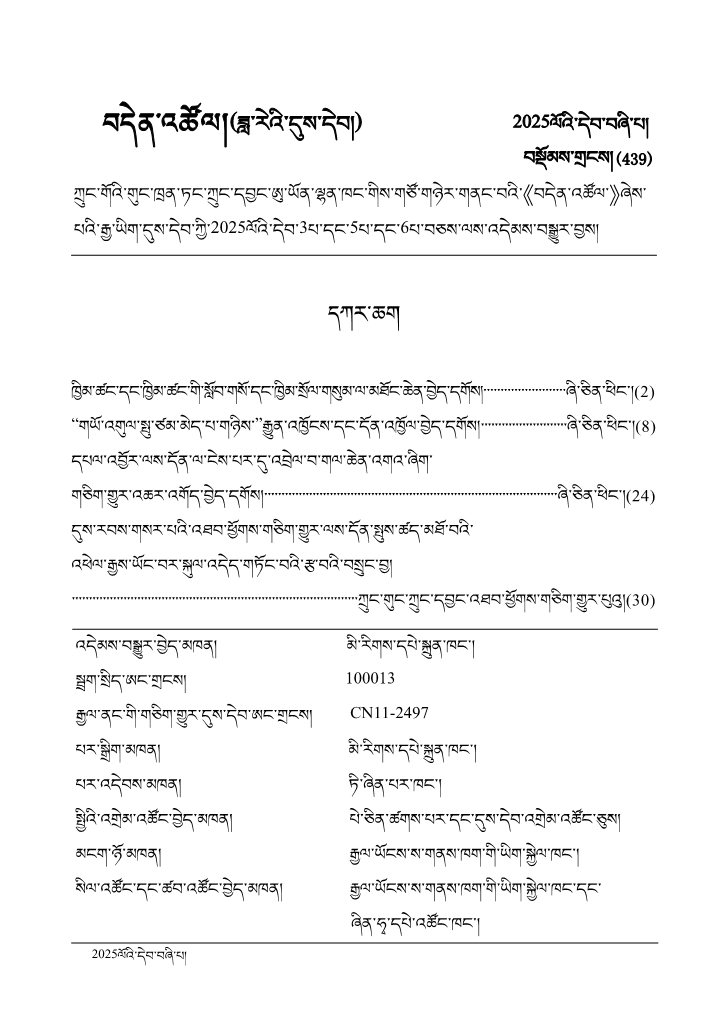 བདེན་འཚོལ།(ཟླ་རེའི་དུས་དེབ།)
2025ལོའི་དེབ་བཞི་པ།
བསྡོམས་གྲངས།(439)
ཀྲུང་གོའི་གུང་ཁྲན་ཏང་ཀྲུང་དབྱང་ཨུ་ཡོན་ལྷན་ཁང་གིས་གཙོ་གཉེར་གནང་བའི་《བདེན་འཚོལ་》ཞེས་
པའི་རྒྱ་ཡིག་དུས་དེབ་ཀྱི་2025ལོའི་དེབ་3པ་དང་5པ་དང་6པ་བཅས་ལས་འདེམས་བསྒྱུར་བྱས།
དཀར་ཆག
ཁྱིམ་ཚང་དང་ཁྱིམ་ཚང་གི་སློབ་གསོ་དང་ཁྱིམ་སྲོལ་གསུམ་ལ་མཐོང་ཆེན་བྱེད་དགོས།························ཞི་ཅིན་ཕིང་།(2)
“གཡོ་འགུལ་སྤུ་ཙམ་མེད་པ་གཉིས་”རྒྱུན་འཁྱོངས་དང་དོན་འཁྱོལ་བྱེད་དགོས།························ཞི་ཅིན་ཕིང་།(8)
དཔལ་འབྱོར་ལས་དོན་ལ་ངེས་པར་དུ་འབྲེལ་བ་གལ་ཆེན་འགའ་ཞིག་
གཅིག་གྱུར་འཆར་འགོད་བྱེད་དགོས།························ཞི་ཅིན་ཕིང་།(24)
དུས་རབས་གསར་པའི་འཐབ་ཕྱོགས་གཅིག་གྱུར་ལས་དོན་སྤུས་ཚད་མཐོ་བའི་
འཕེལ་རྒྱས་ཡོང་བར་སྐུལ་འདེད་གཏོང་བའི་རྩ་བའི་བསྲུང་བྱ།
························ཀྲུང་གུང་ཀྲུང་དབྱང་འཐབ་ཕྱོགས་གཅིག་གྱུར་པུའུ།(30)
འདེམས་བསྒྱུར་བྱེད་མཁན། མི་རིགས་དཔེ་སྐྲུན་ཁང་།
སྦྲག་སྲིད་ཨང་གྲངས། 100013
རྒྱལ་ནང་གི་གཅིག་གྱུར་དུས་དེབ་ཨང་གྲངས། CN11-2497
པར་སྒྲིག་མཁན། མི་རིགས་དཔེ་སྐྲུན་ཁང་།
པར་འདེབས་མཁན། ཏི་ཞིན་པར་ཁང་།
སྤྱིའི་འགྲེམ་འཚོང་བྱེད་མཁན། པེ་ཅིན་ཚགས་པར་དང་དུས་དེབ་འགྲེམ་འཚོང་ཅུས།
མངག་ཉོ་མཁན། རྒྱལ་ཡོངས་ས་གནས་ཁག་གི་ཡིག་སྐྱེལ་ཁང་།
སིལ་འཚོང་དང་ཚབ་འཚོང་བྱེད་མཁན། རྒྱལ་ཡོངས་ས་གནས་ཁག་གི་ཡིག་སྐྱེལ་ཁང་དང་
ཞིན་ཧྭ་དཔེ་འཚོང་ཁང་།
2025ལོའི་དེབ་བཞི་པ།